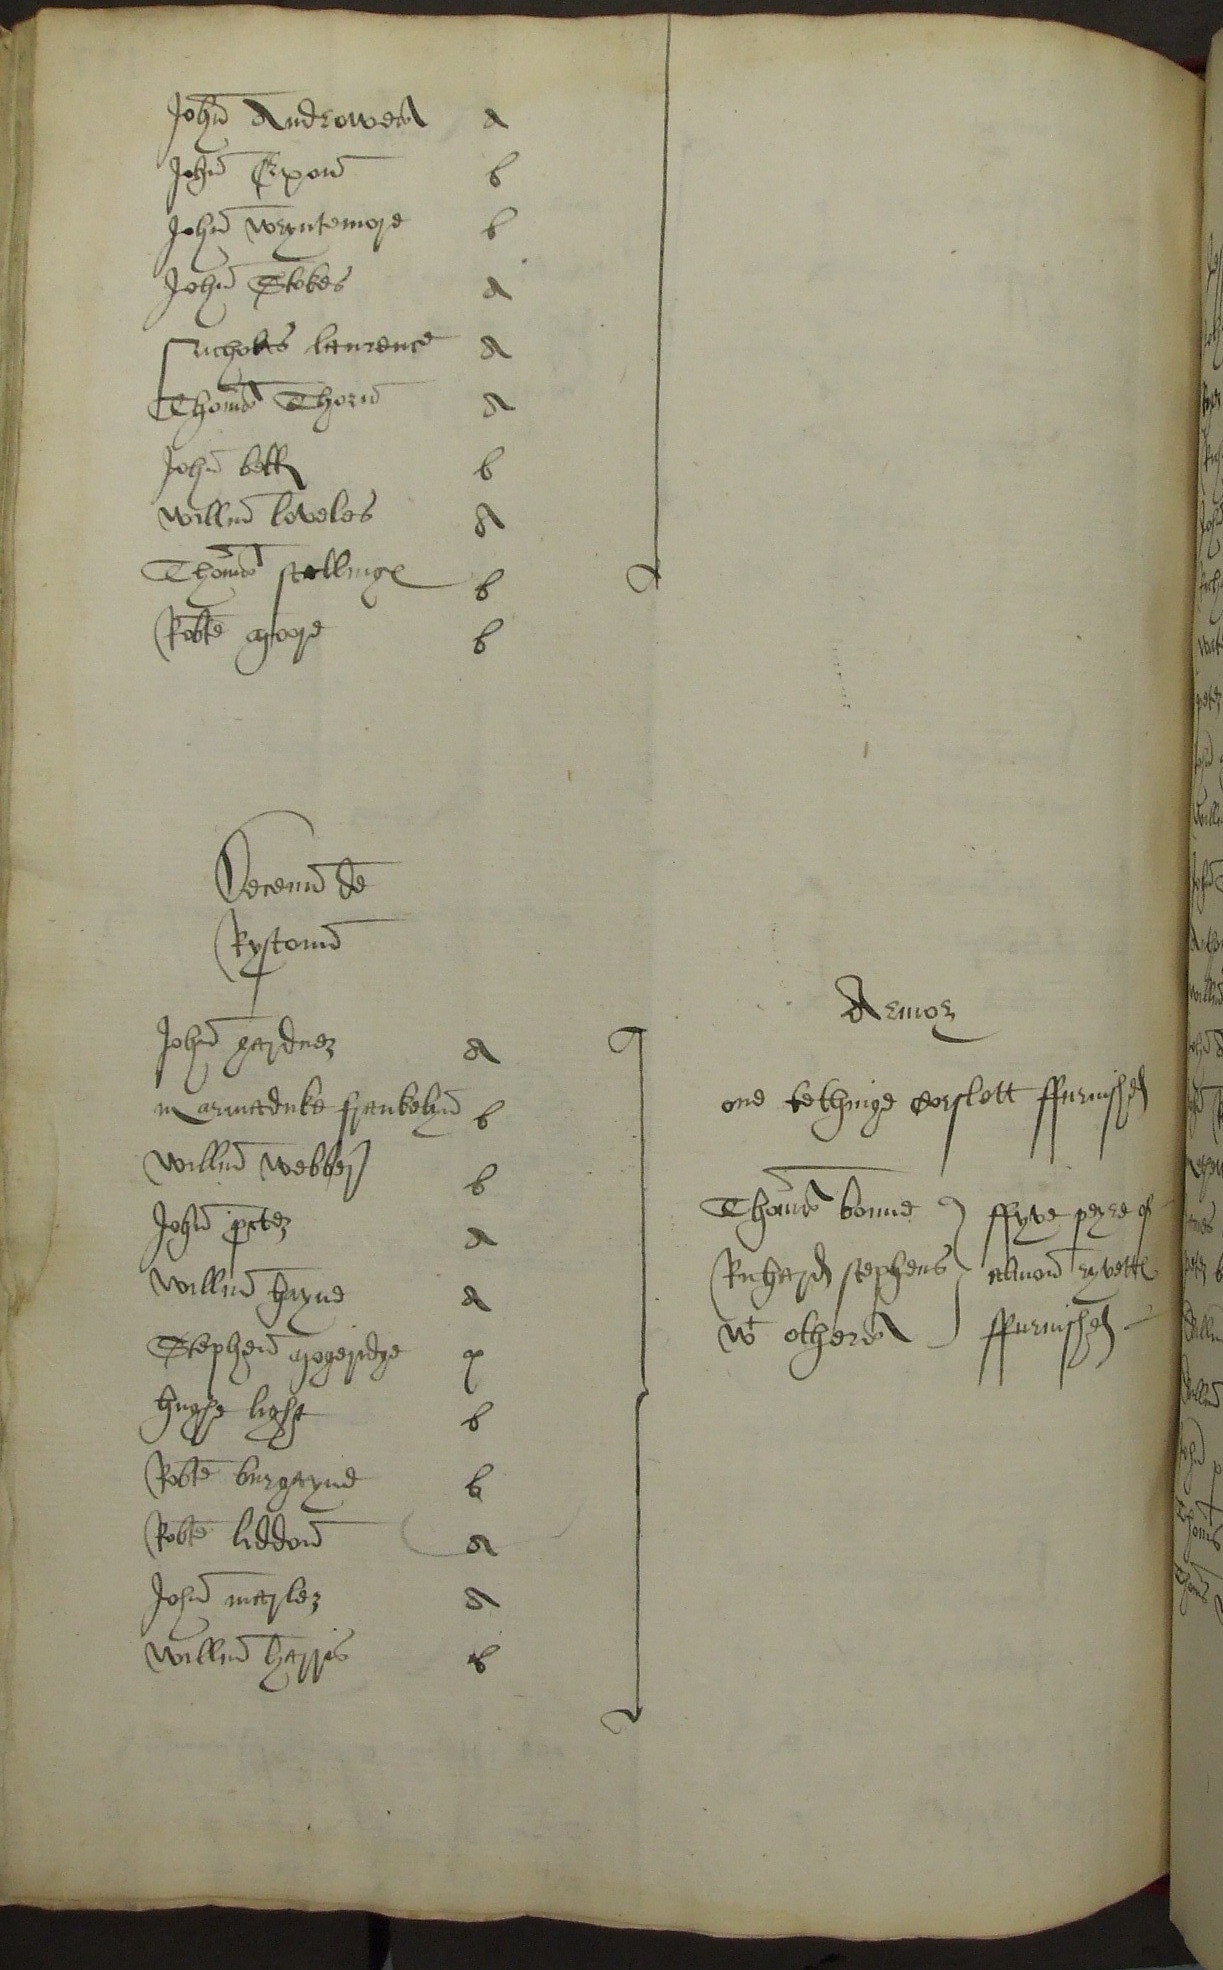 John Androwes a
John Crpon b
John Weyntemore b
John Stokes a
Nicholas laurence a
Thomas Thorn a
John bett b
Willm loveles a
Thomas stallinge b
Robte goore b
Decenn de
Rystonn
John gardner a
marmaduke frankelyn b
Willm Webber b
John peter a
Willm hayne a
Stephen gogeridge p
hughe light b
Robte burgayne b
Robte liddon a
John marler a
Willm harris b
Armor
one tethinge Corslett ffurnished
Thomas bonne
Richard stephens
wt others
ffyve peyre of
almon ryvette
ffurnished